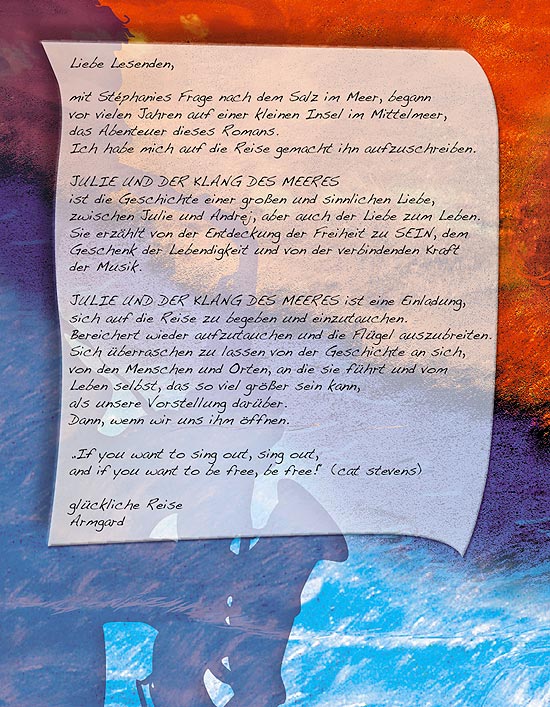 Liebe Lesenden,
mit Stéphanies Frage nach dem Salz im Meer, begann
vor vielen Jahren auf einer kleinen Insel im Mittelmeer,
das Abenteuer dieses Romans.
Ich habe mich auf die Reise gemacht ihn aufzuschreiben.
JULIE UND DER KLANG DES MEERES
ist die Geschichte einer großen und sinnlichen Liebe,
zwischen Julie und Andrej, aber auch der Liebe zum Leben.
Sie erzählt von der Entdeckung der Freiheit zu SEIN, dem
Geschenk der Lebendigkeit und von der verbindenden Kraft
der Musik.
JULIE UND DER KLANG DES MEERES ist eine Einladung,
sich auf die Reise zu begeben und einzutauchen.
Bereichert wieder aufzutauchen und die Flügel auszubreiten.
Sich überraschen zu lassen von der Geschichte an sich,
von den Menschen und Orten, an die sie führt und vom
Leben selbst, das so viel größer sein kann,
als unsere Vorstellung darüber.
Dann, wenn wir uns ihm öffnen.
„If you want to sing out, sing out,
and if you want to be free, be free!“ (cat stevens)
glückliche Reise
Armgard